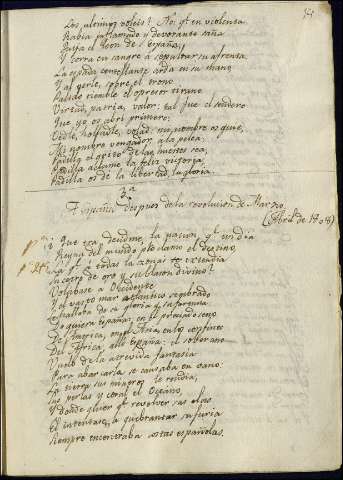 Los ultimos voleis? No: qt. en violenta
Rabia inflamado y devorante saña
Ruja el leon de España,
Y corra en sangre à sepultar su afrenta.
La espada centellante arda en su mano,
Y al verle, sobre el trono
Palido tiemble el opresor tirano.
Virtud, patria, valor: tal fue el sendero
Que yo os abrì primero:
Vedle, holladle, volad: mi nombre os guie,
Mi nombre vengador à la pelea:
Padilla el grito de las huestes sea,
Padilla aclame la feliz victoria,
Padilla os dè la libertad, la gloria.
3.ª
España, despues de la revolucion de Marzo.
(Abril de 1808)
¿Que era, decidme, la nacion qe. un dia
Reyna del mundo proclamò el destino,
La qe. à todas las zonas extendia
Su cetro de oro y su blason divino?
Volabase à Occidente,
Y el vasto mar atlantico sembrado
Se hallaba de su gloria y su fortuna.
Do quiera España: en el preciado seno
De America, en el Asia, en los confines
Del Africa, alli España: el soberano
Vuelo de la atrevida fantasia
Para abarcarla se cansaba en vano:
La tierra sus mineros le rendia,
Sus perlas y coral el Oceano,
Y donde quier qe. revolver sus olas
El intentase, à quebrantar su furia
Siempre encontraba costas españolas.